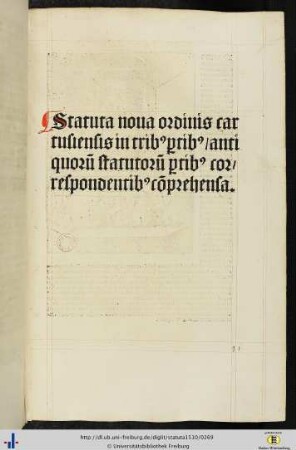 Statuta noua ordinis car
tusiensis in trib⁹ ꝑtib⁹/anti
quorũ statutorũ ꝑtib⁹ cor/
respondentib⁹ cõprehensa.
http://dl.ub.uni-freiburg.de/diglit/statuta1510/0269
© Universitätsbibliothek Freiburg